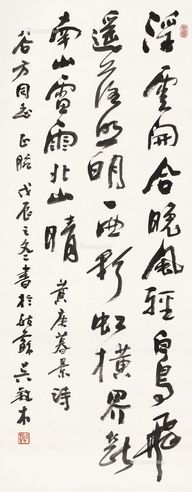 浮雲開合晚風輕白鳥飛
邊落照明一曲彩虹橫界斷
南山雷雨北山晴
黃庚暮景詩
谷方同志正腕戊辰之冬書於姑蘇吳木